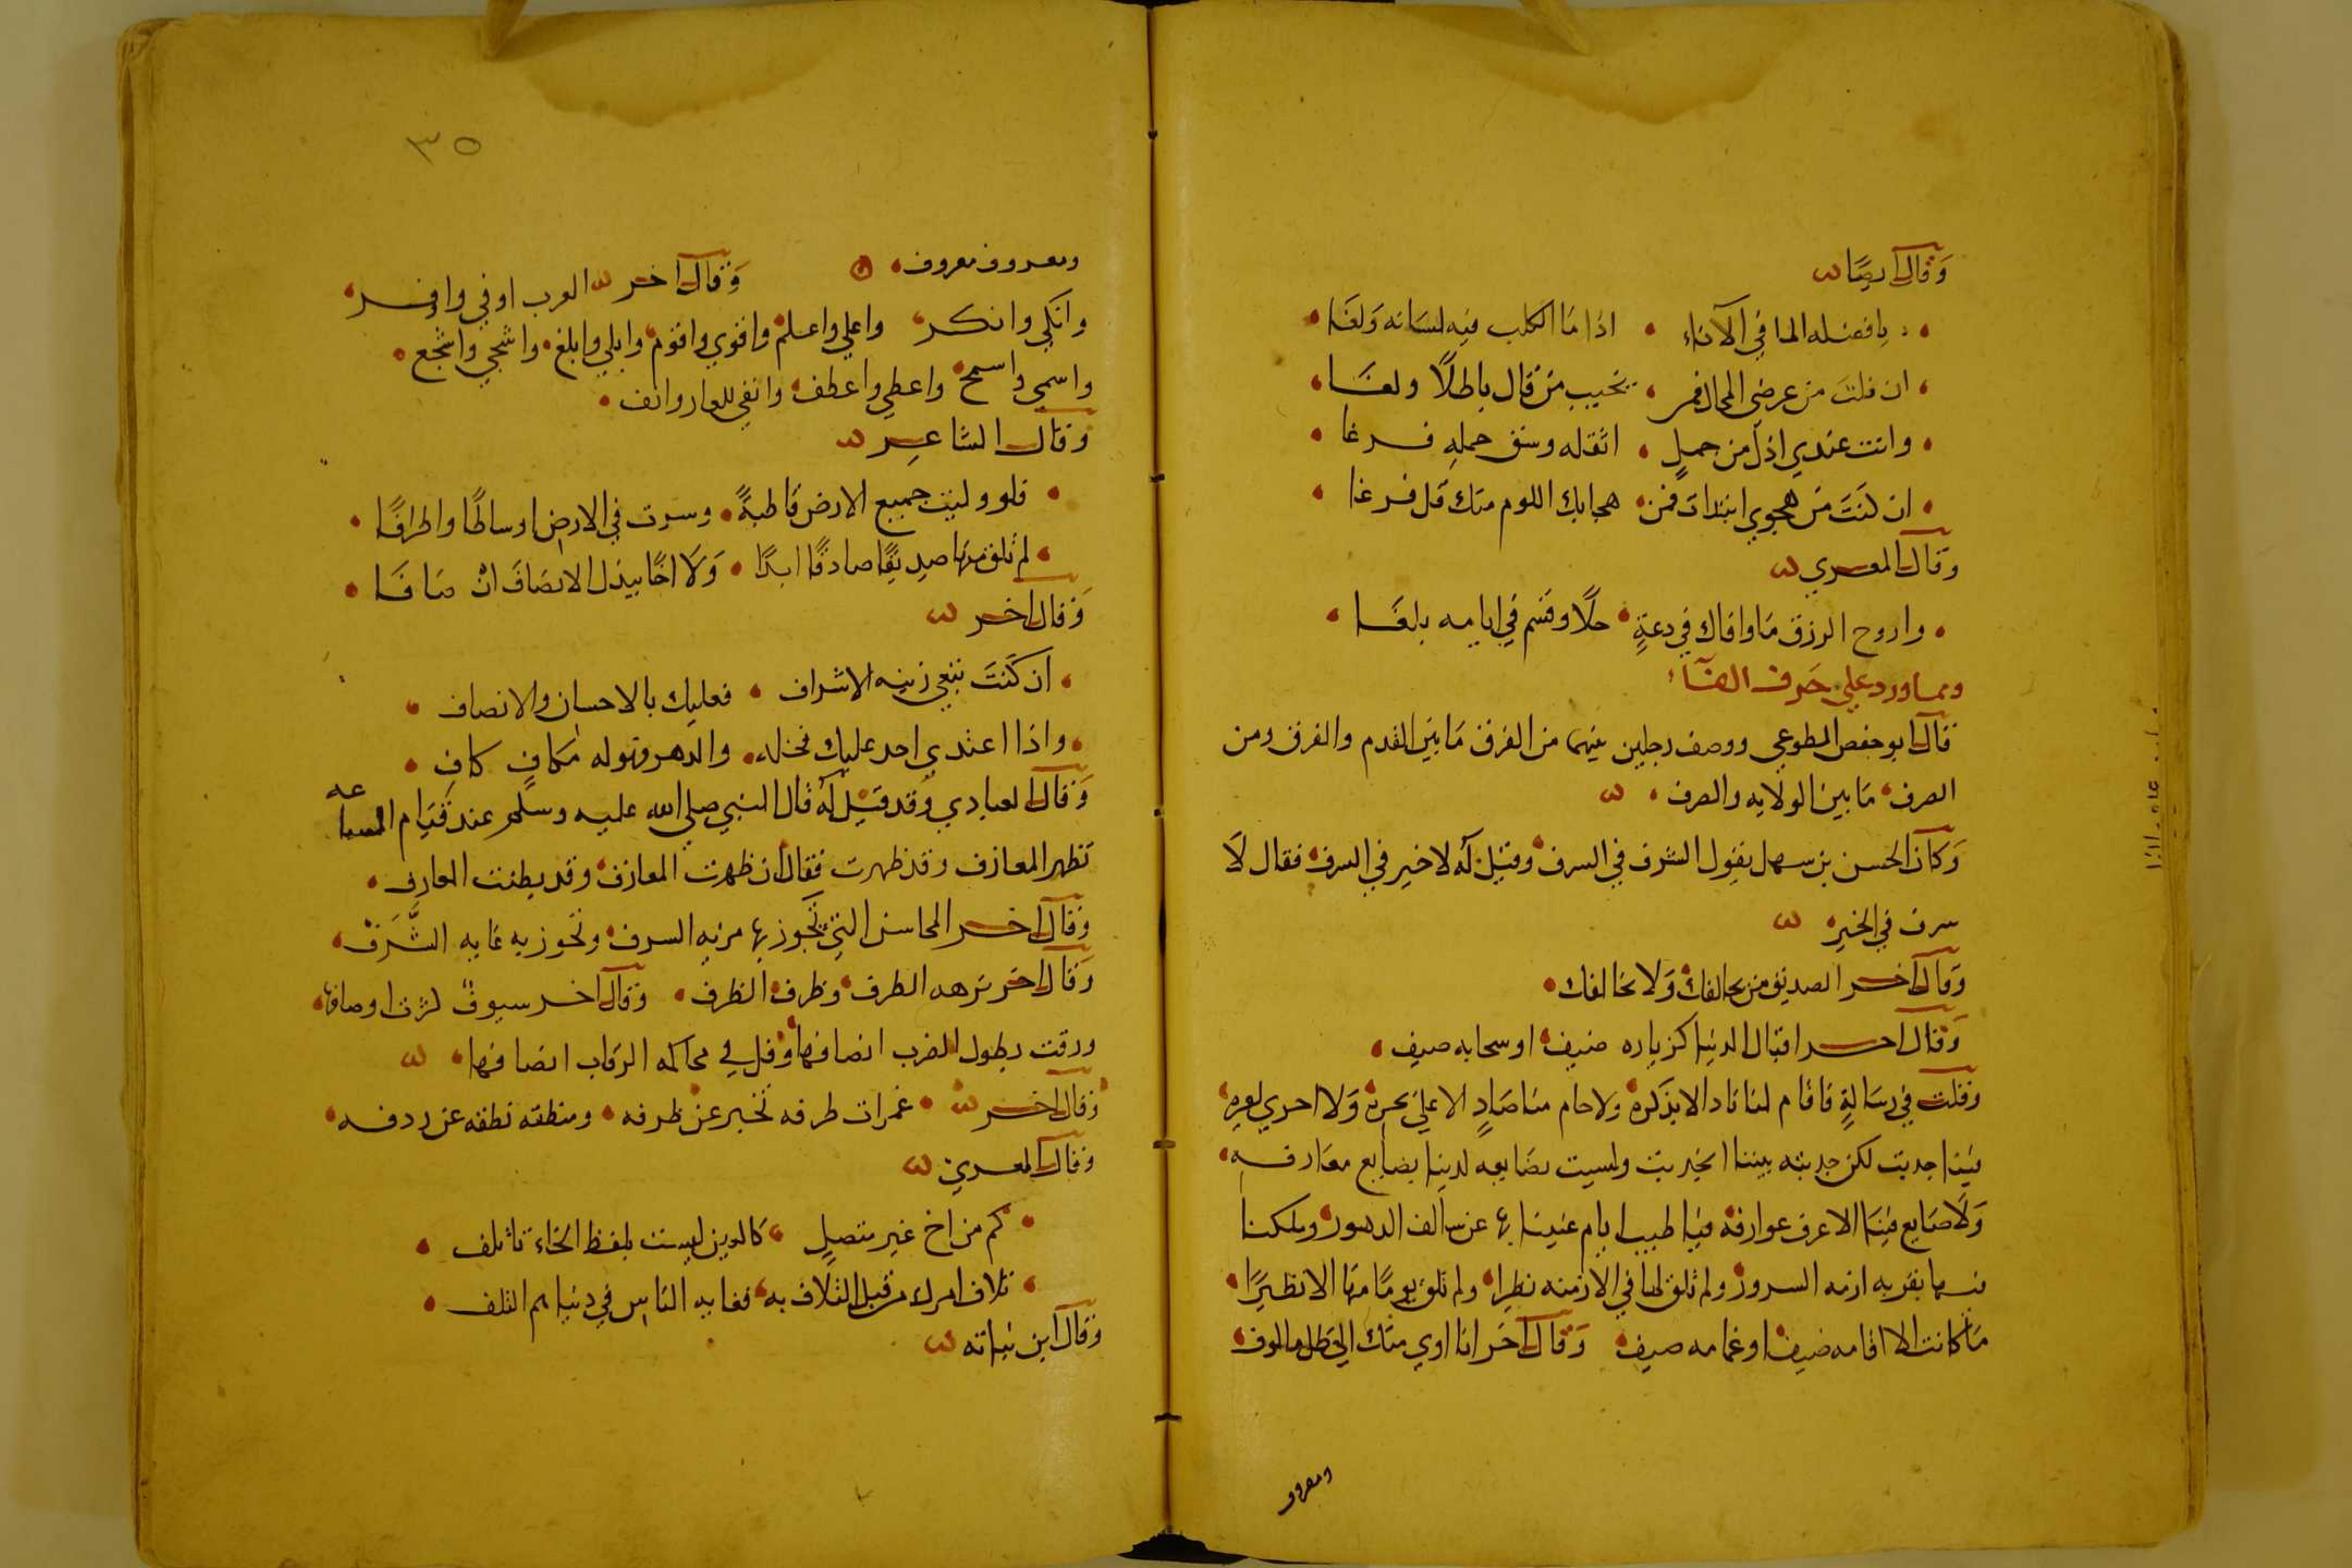 وقال ايضًا
يا فضله الما في الآناء اذا ما الكلب فيه لسانه ولغا
ان قلت من عرضى المحال فمر يخيب من قال باطلًا ولغا
وانت عندي اذل من جملٍ اثقله وسق حمله فرغا
ان كنتَ من هجوي ابتدات فمن هجايك اللوم منك قل فرغا
وقال المعري
واروح الرزق ما وافاك في دعةٍ حلًا وقسم في ايامه بلغا
ومما ورد علي حرف الفآء
قال ابو حفص المطوعي ووصف رجلين بينهما من الفرق ما بين القدم والفرق ومن
الصرف ما بين الولايه والصرف
وكان الحسن بن سهل يقول الشرف في السرف وقيل له لا خير في السرف فقال لا
سرف في الخير
وقال اخر الصديق من يحالفك ولا يخالفك
وقال اخر اقبال الدنيا كزياره ضيف او سحابه صيف
وقلت في رسالةٍ فاقام لنا ناد الا بذكره ولا حام منا صادٍ الا علي بحره ولا
جديت لكن جديته بيننا وليست بضايعه لدينا بضايع معارفه
ولا ضايع فينا الا عرف عوارفه فيا طيب ايام غنينا بها عن سالف الدهور وملكنا
ازمه السرور ولم تلق لها في الازمنه نظيرا ولم تلق يومًا منها الا نظيرًا
ما كانت الا اقامه ضيف او غمامه صيف وقال اخر انا اوي منك الي ظل مالوف
ومعرو
٣٥
ومعروف معروف وقال اخر العرب اوفي واوفر
وانكي وانكر واعلي واعلم واقوي واقوم وابلي وابلغ واشجي واشجع
واسمي واسمح واعطي واعطف وانفي للعار وانف
وقال الشاعر
فلو وليت جميع الارض قاطبةً وسرت في الارض اوساطًا واطرافًا
لم تلق منها صديقًا صادقًا ابدًا ولا اخًا يبذل الانصاف ان صافا
وقال اخر
ان كنتَ تبغي زينه الاشراف فعليك بالاحسان والانصاف
واذا اعتدي احد عليك فخله والدهر فهو له مكافٍ كافِ
وقال العبادي وقد قيل له قال النبي صلي الله عليه وسلم عند قيام الساعه
تظهر المعازف وقد ظهرت فقال ان ظهرت المعازف وقد بطنت المعارف
وقال اخر المحاسن التي تجوز بها مزيه السرف وتحوز به غايه الشَّرَفْ
وقال اخر نزهه الطرف وظرف الظرف وقال اخر سيوف اوصافها
ورقت بطول الضرب انصافها وقل في محاكمه الرقاب انصافها
وقال اخر غمرات طرفه تخبر عن ظرفه ومنطقه نطقه عن ردفه
وقال المعري
كم من اخ غير متصلٍ كالدين ليست بلفظ الخاء تاتلف
تلاف امرك من قبل التلاف به فغايه الناس في دنياهم التلف
وقال ابن نباته